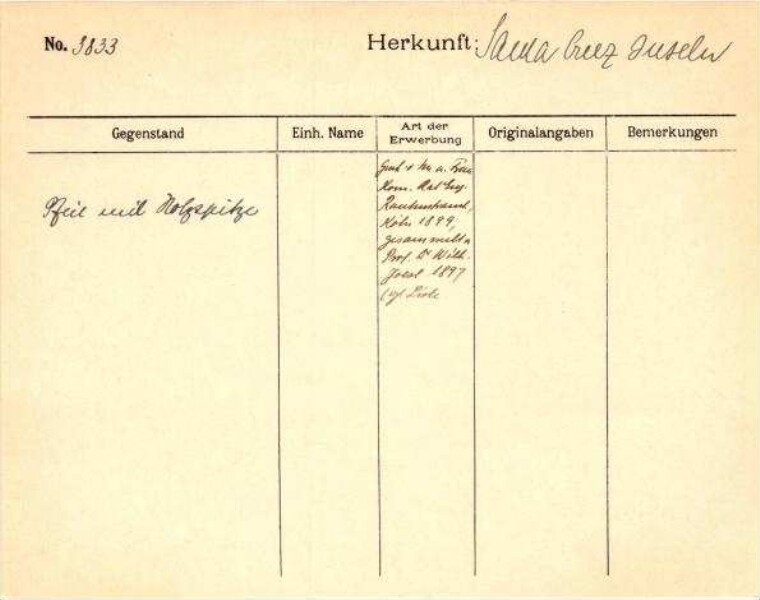 No. 3833
Herkunft: Santa Cruz Inseln
Gegenstand
Einh. Name
Art der Erwerbung
Originalangaben
Bemerkungen
Pfeil mit Holzspitze
u. Frau
Kom. Rat Eug.
Rautenstrauch,
Köln 1899,
gesammelt v.
Prof. Dr Wilh.
Joest 1897
Liste